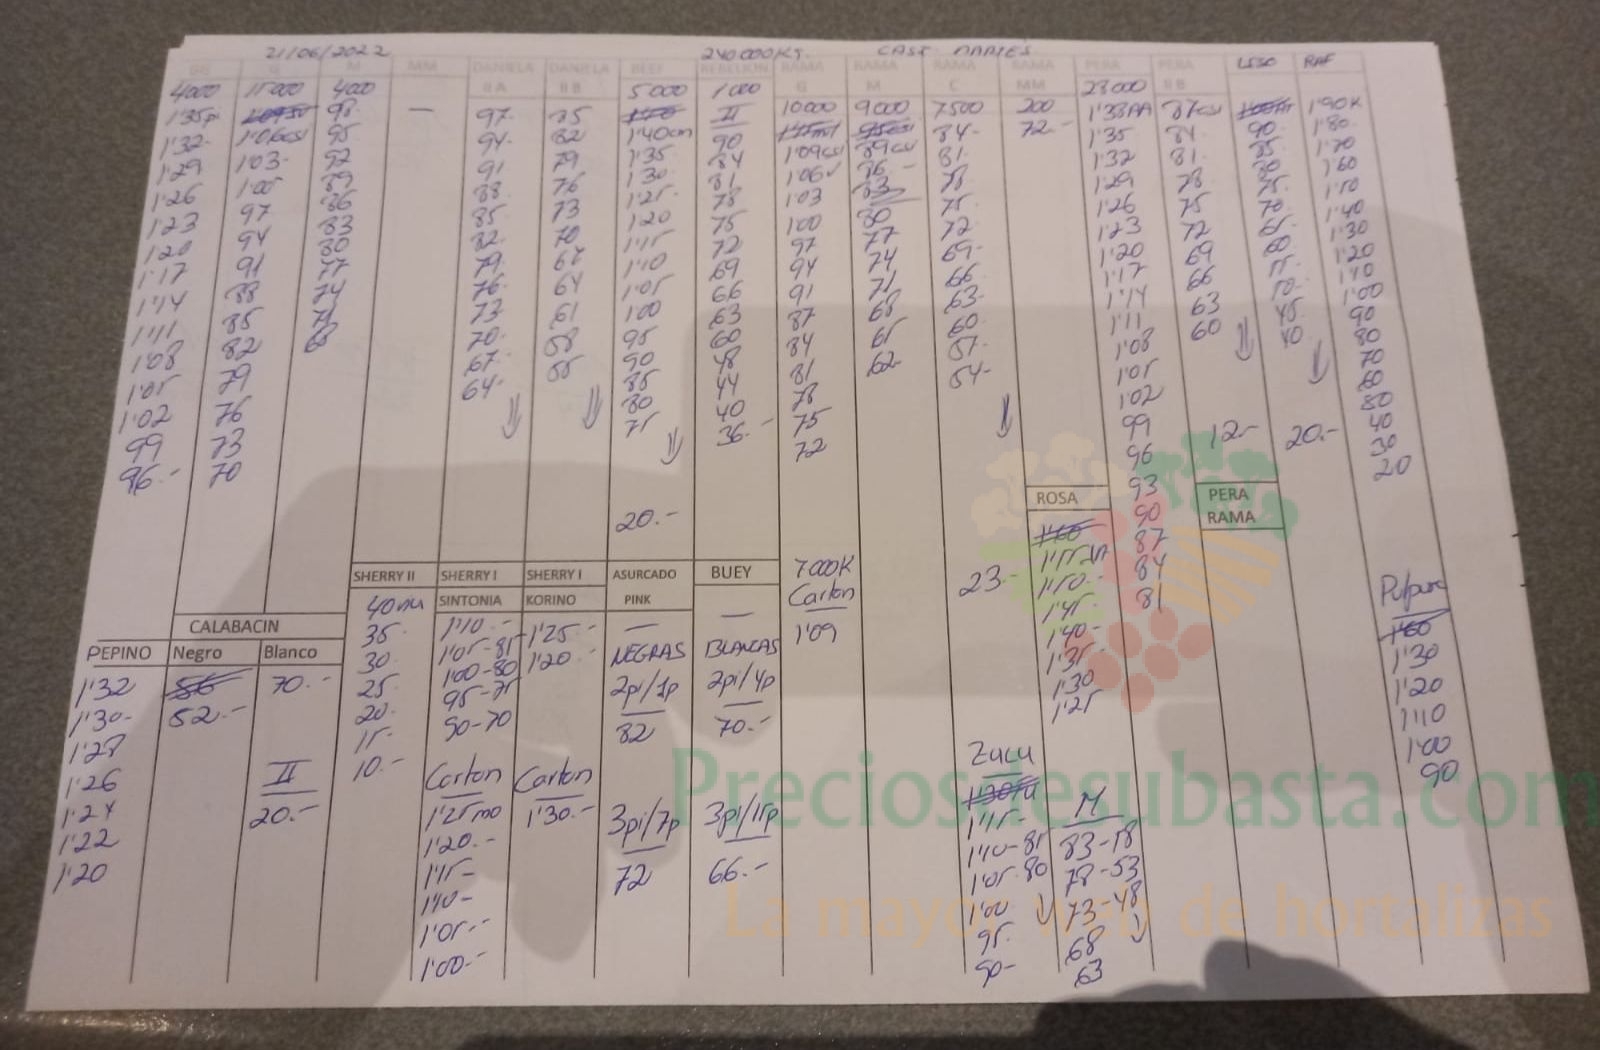 21/06/2022 240000KG. CAST NARIES
GG G M MM DANIELA DANIELA BEEF REBELION RAMA RAMA RAMA RAMA PERA PERA LISO RAF
II A II B G M C MM II B
4000 15000 4000 5000 1000 10000 9000 7500 200 23000
1'35 98 — 97 85 II 84- 72- 1'38AA 87 1'90K
1'32- 95 94- 82 1'40 90 1'09 89 81- 1'35 84- 90- 1'80-
1'29 1'03- 92 91 79 1'35 84 1'06 86 - 78- 1'32 81- 85- 1'70
1'26 1'00 89 88- 76 1'30 81 1'03 83 75- 1'29 78 80 1'60
1'23 97 86 85- 73 1'25- 78 1'00 80 72 1'26 75 75- 1'50
1'20 94 83 82- 70 1'20 75 97 77 69- 1'23 72 70- 1'40
1'17 91 80 79- 67 1'15 72 94 74 66- 1'20 69 65- 1'30
1'14 88 77 76- 64 1'10 69 91 71 63- 1'17 66 60 1'20
1'11 85 74 73 61 1'05 66 87 68 60- 1'14 63 55- 1'10
1'08 82 71 70- 58 1'00 63 84 65 57- 1'11 60 50- 1'00
1'05 79 68 67- 55 95 60 81 62- 54- 1'08 45- 90
1'02 76 64- 90 48 78 1'05 40 80
99 73 85 44 75 1'02 70
96.- 70 80 40 72 99 12- 20.- 60
75 36.- 96 50
20.- 93 40
ROSA 90 PERA 30
RAMA 20
87
84
81
1'55
1'50.-
1'45-
1'40-
1'35-
1'30
1'25
SHERRY II SHERRY I SHERRY I ASURCADO BUEY 7000K 23-
SINTONIA KORINO PINK Carton
40 1'10.- 1'25- — — 1'09
35- 1'05-85 1'20- NEGRAS BLANCAS
30- 100-80 2pi/1p 2pi/4p
25- 95-75 82 70.-
20- 90-70
15-
10.-
CALABACIN
PEPINO Negro Blanco
1'32 56 70.-
1'30- 52.-
1'28
1'26 II
1'24 20.-
1'22
1'20
Carton Carton
1'25 1'30.- 3pi/7p 3pi/15p
1'20.- 72 66.-
1'15-
1'10-
1'05--
1'00--
Zucu
1'15- M
1'10-85 83-58
1'05-80 78-53
1'00 73-48
95- 68
90- 63
1'60
1'30
1'20
1'10
1'00
90
Preciosdesubasta.com
La mayor web de hortalizas